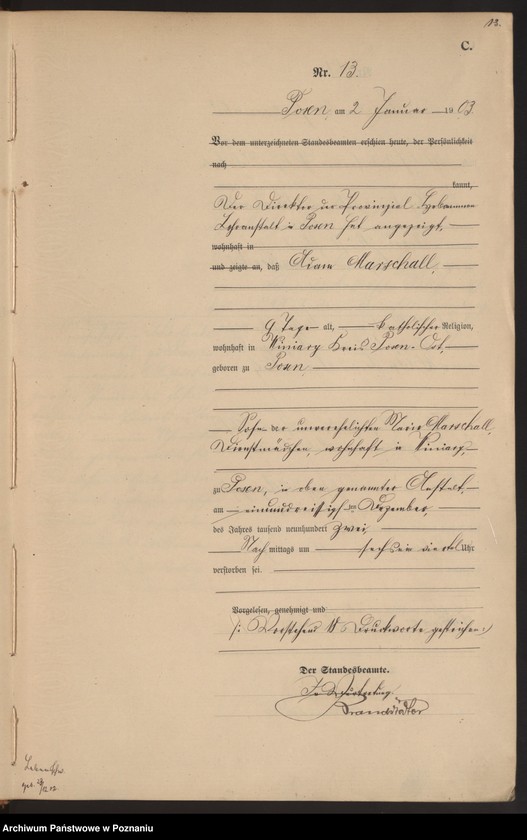 12.
C.
Nr. 13.
Posen, am 2 Januar 1903.
Vor dem unterzeichneten Standesbeamten erschien heute, der Persönlichkeit
nach
kannt,
Der Direktor der Provinzial Hebammen
Lehranstalt in Posen hat angezeigt,
wohnhaft in
und zeigte an, daß Adam Marschall,
9 Tage alt, katholischer Religion,
wohnhaft in Winiary Kreis Posen-Ost,
geboren zu Posen
Sohn der unverehelichten Maria Marschall,
Dienstmädchen, wohnhaft in Winiary,
zu Posen, in oben genannter Anstalt,
am einunddreißigsten Dezember,
des Jahres tausend neunhundert zwei,
Nachmittags um sechs ein viertel Uhr
verstorben sei.
Vorgelesen, genehmigt und
/: Vorstehend Druckworte gestrichen :/
Der Standesbeamte.
In Vertretung